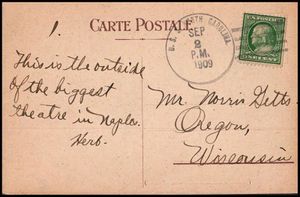 CARTE POSTALE
1.
This is the outside
of the biggest
theatre in Naples.
Herb.
U.S.S. NORTH CAROLINA
SEP
2
P.M.
1909
Mr. Norris Getts.
Oregon,
Wisconsin